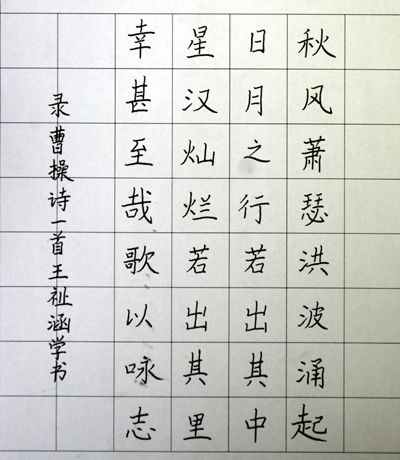 秋风萧瑟洪波涌起
日月之行若出其中
星汉灿烂若出其里
幸甚至哉歌以咏志
录曹操诗一首王祉涵学书